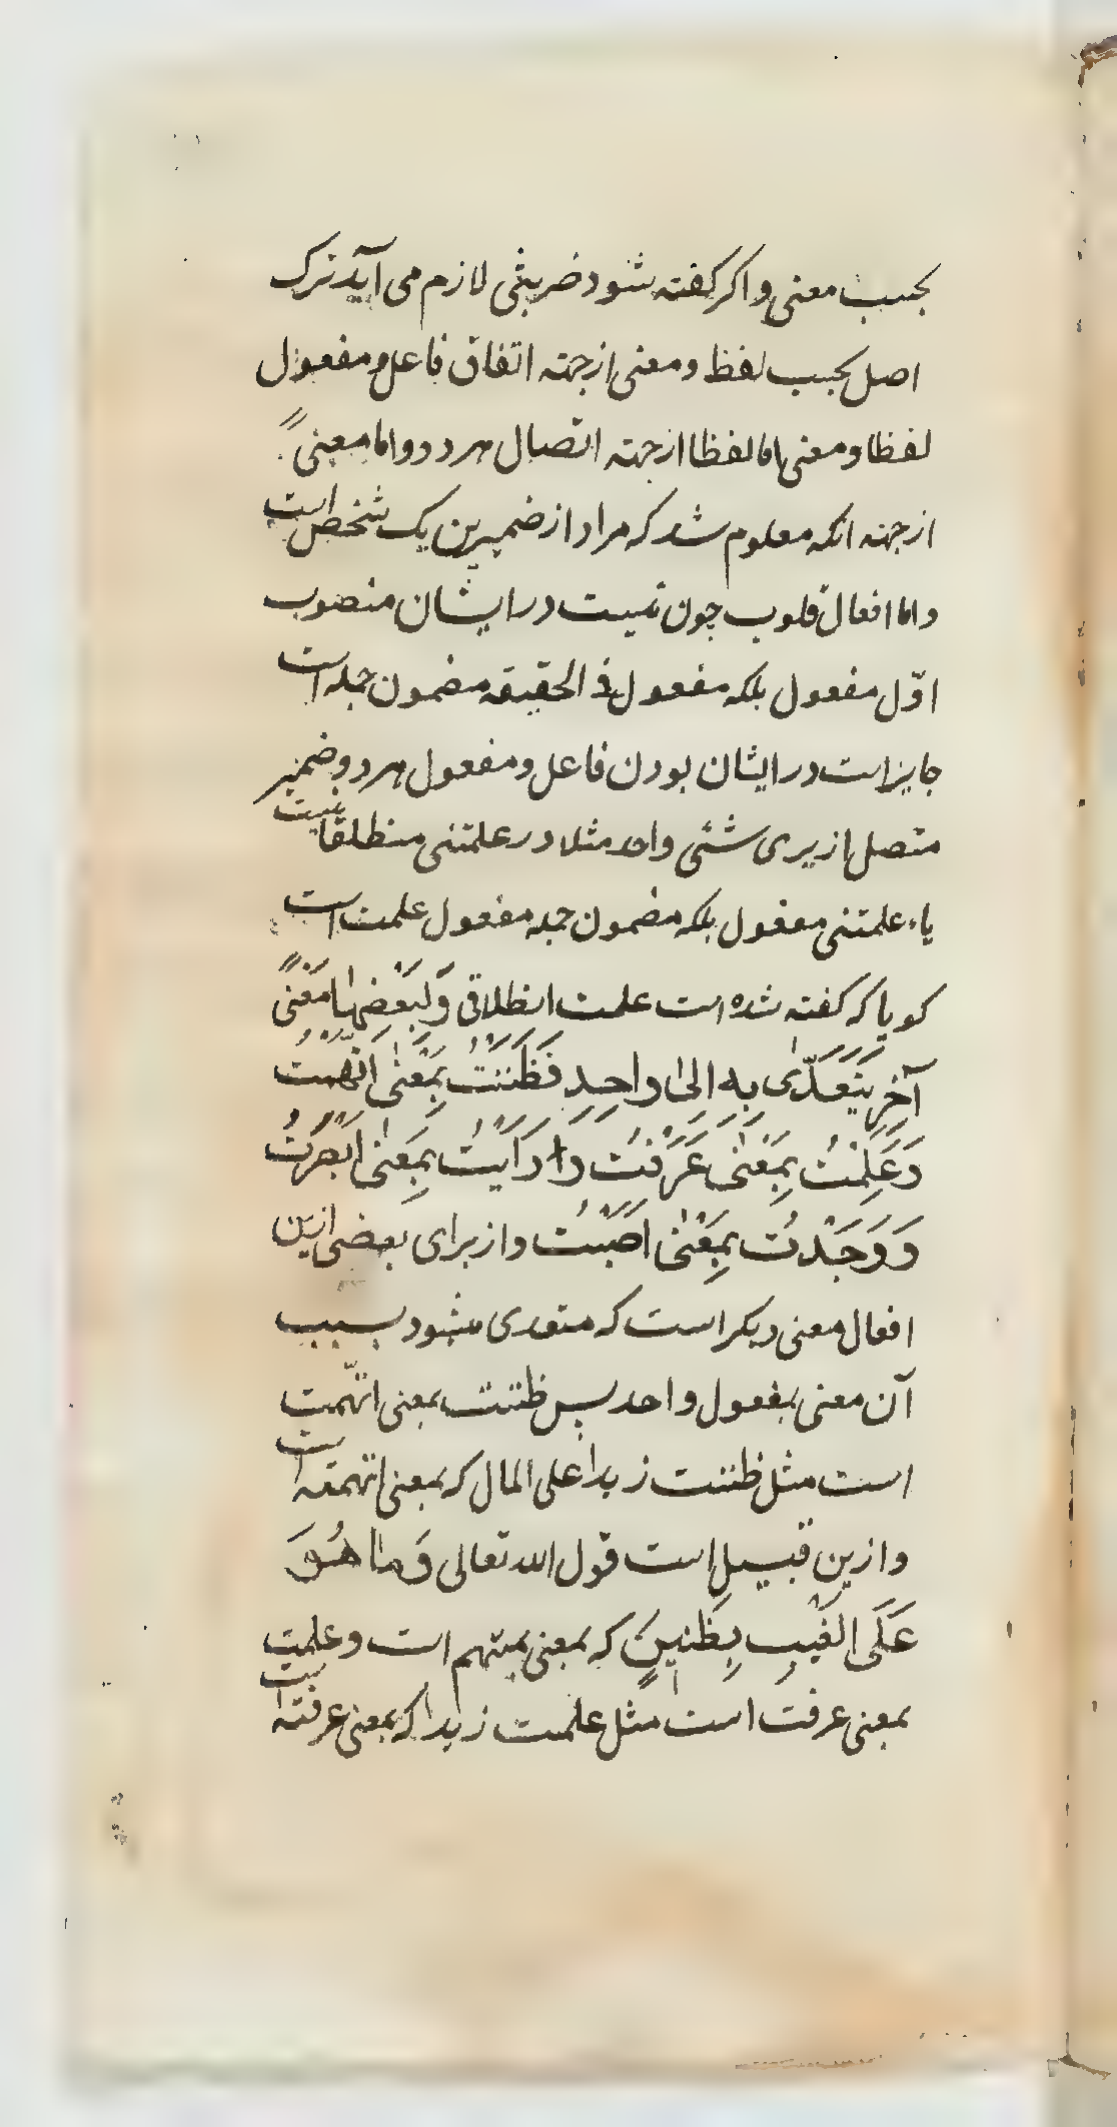 بحسب معنی و اکر کفته شود ضربتنی لازم می آید ترک
اصل بحسب لفظ و معنی از جهته اتفاق فاعل و مفعول
لفظا و معنی اما لفظا از جهته اتصال هر دو و اما معنیً
از جهته انکه معلوم شد که مراد از ضمیرین یک شخص است
و اما افعال قلوب چون نیست در ایشان منصوب
اوّل مفعول بلکه مفعول فی الحقیقه مضمون جمله است
جایز است در ایشان بودن فاعل و مفعول هر دو ضمیر
متصل از برای شئی واحد مثلا در علمتنی منطلقا نیست
یاء علمتنی مفعول بلکه مضمون جمله مفعول علمت است
کویا که کفته شده است علمت انطلاقی وَلِبَعْضِهَا مَعْنًی
آخَرُ یَتَعَدّٰی بِهِ اِلیٰ وَاحِدٍ فَظَنَنْتُ بِمَعْنٰی اتَّهَمْتُ
وَعَلِمْتُ بِمَعْنٰی عَرَفْتُ وَ رَاَیْتُ بِمَعْنٰی اَبْصَرْتُ
وَوَجَدْتُ بِمَعْنٰی اَصَبْتُ و از برای بعضی ازین
افعال معنی دیکر است که متعدی میشود بسبب
آن معنی بمفعول واحد پس ظننت بمعنی اتّهمت
است مثل ظننت زیدا علی المال که بمعنی اتهمته است
و ازین قبیل است قول الله تعالی وَمَا هُوَ
عَلَی الْغَیْبِ بِظَنِینٍ که بمعنی بمتهم است و علمت
بمعنی عرفت است مثل علمت زیدا که بمعنی عرفته است